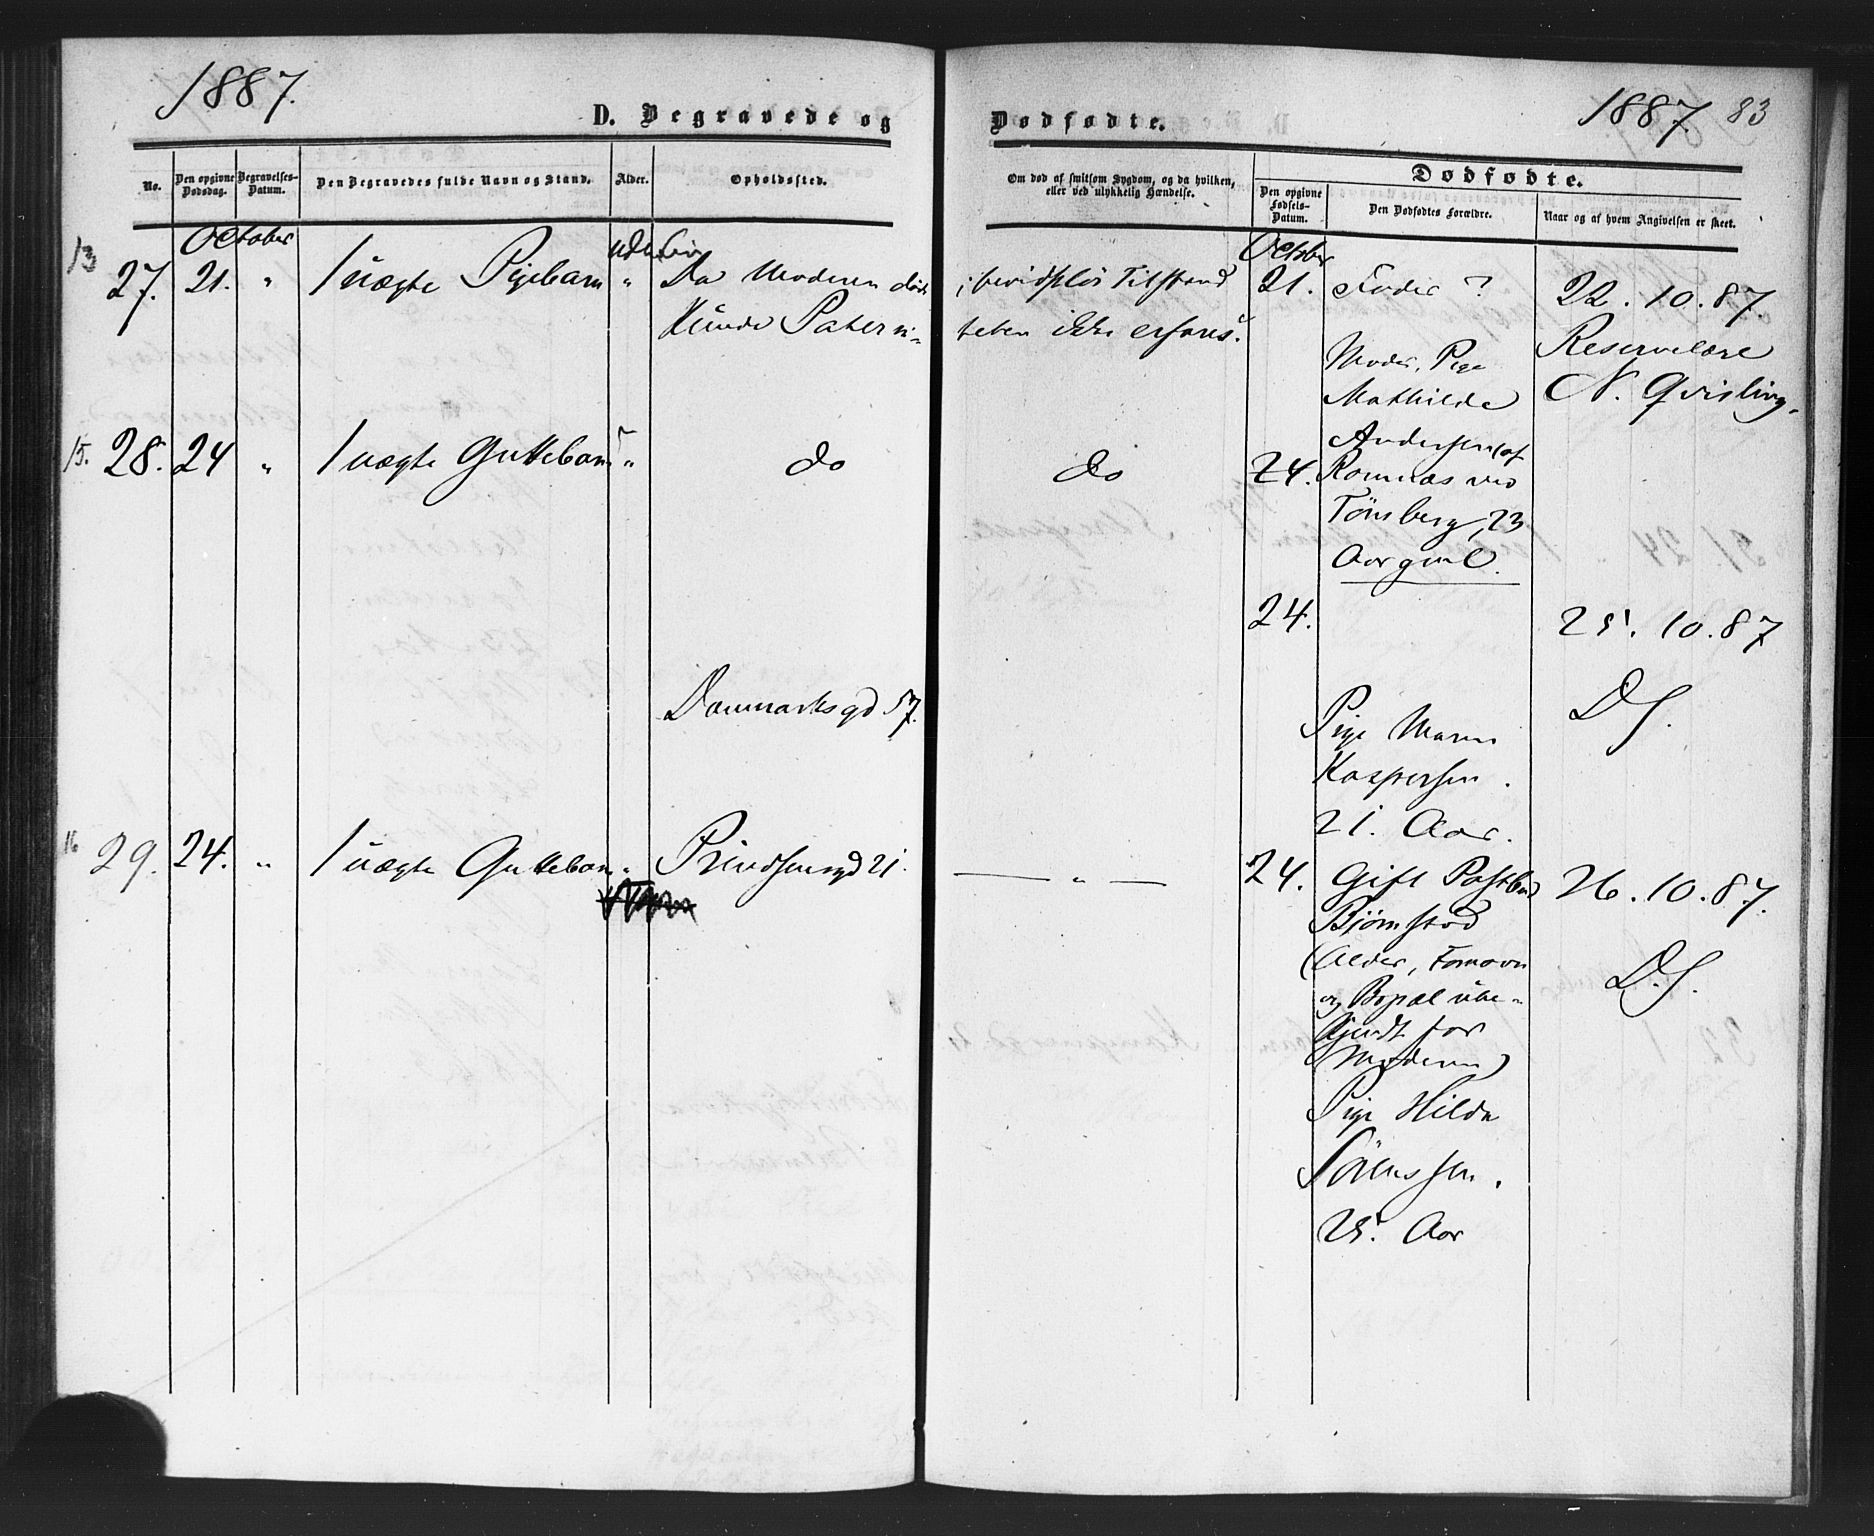 1887.
D. Begravede og
No.
Den opgivne Dødsdag.
Begravelses-Datum.
Den Begravedes fulde Navn og Stand.
Alder.
Opholdssted.
October
13
27. 21. " 1 uægte Pigebarn " Da Moderen døde
Kunde Patern-
15. 28. 24 " 1 uægte Guttebarn " do
Danmarksgd 57.
16 29. 24. " 1 uægte Guttebarn " Prindsensgd 21.
Dødfødte.
1887. 83
Om død af smitsom Sygdom, og da hvilken,
eller ved ulykkelig Hændelse.
Dødfødte.
Den opgivne Fødsels-Datum.
Den Dødfødtes Forældre.
Naar og af hvem Angivelsen er skeet.
October
i bevidstløs Tilstand 21. Fader ? 22. 10. 87.
teten ikke erfares.
Reservelæge
Moder, Pige
N. Qvisling.
Mathilde
Andersen af
do 24. Ramnæs ved
Tönsberg, 23
Aar gml.
24. 25. 10. 87
D.S.
Pige Maren
Kaspersen.
21. Aar.
" 24. Gift Postbud 26. 10. 87.
Björnstad
(Alder, Fornavn
og Bopæl ube-
kjendt for
Moderen)
D.S.
Pige Hilda
Sörenssen.
25. Aar